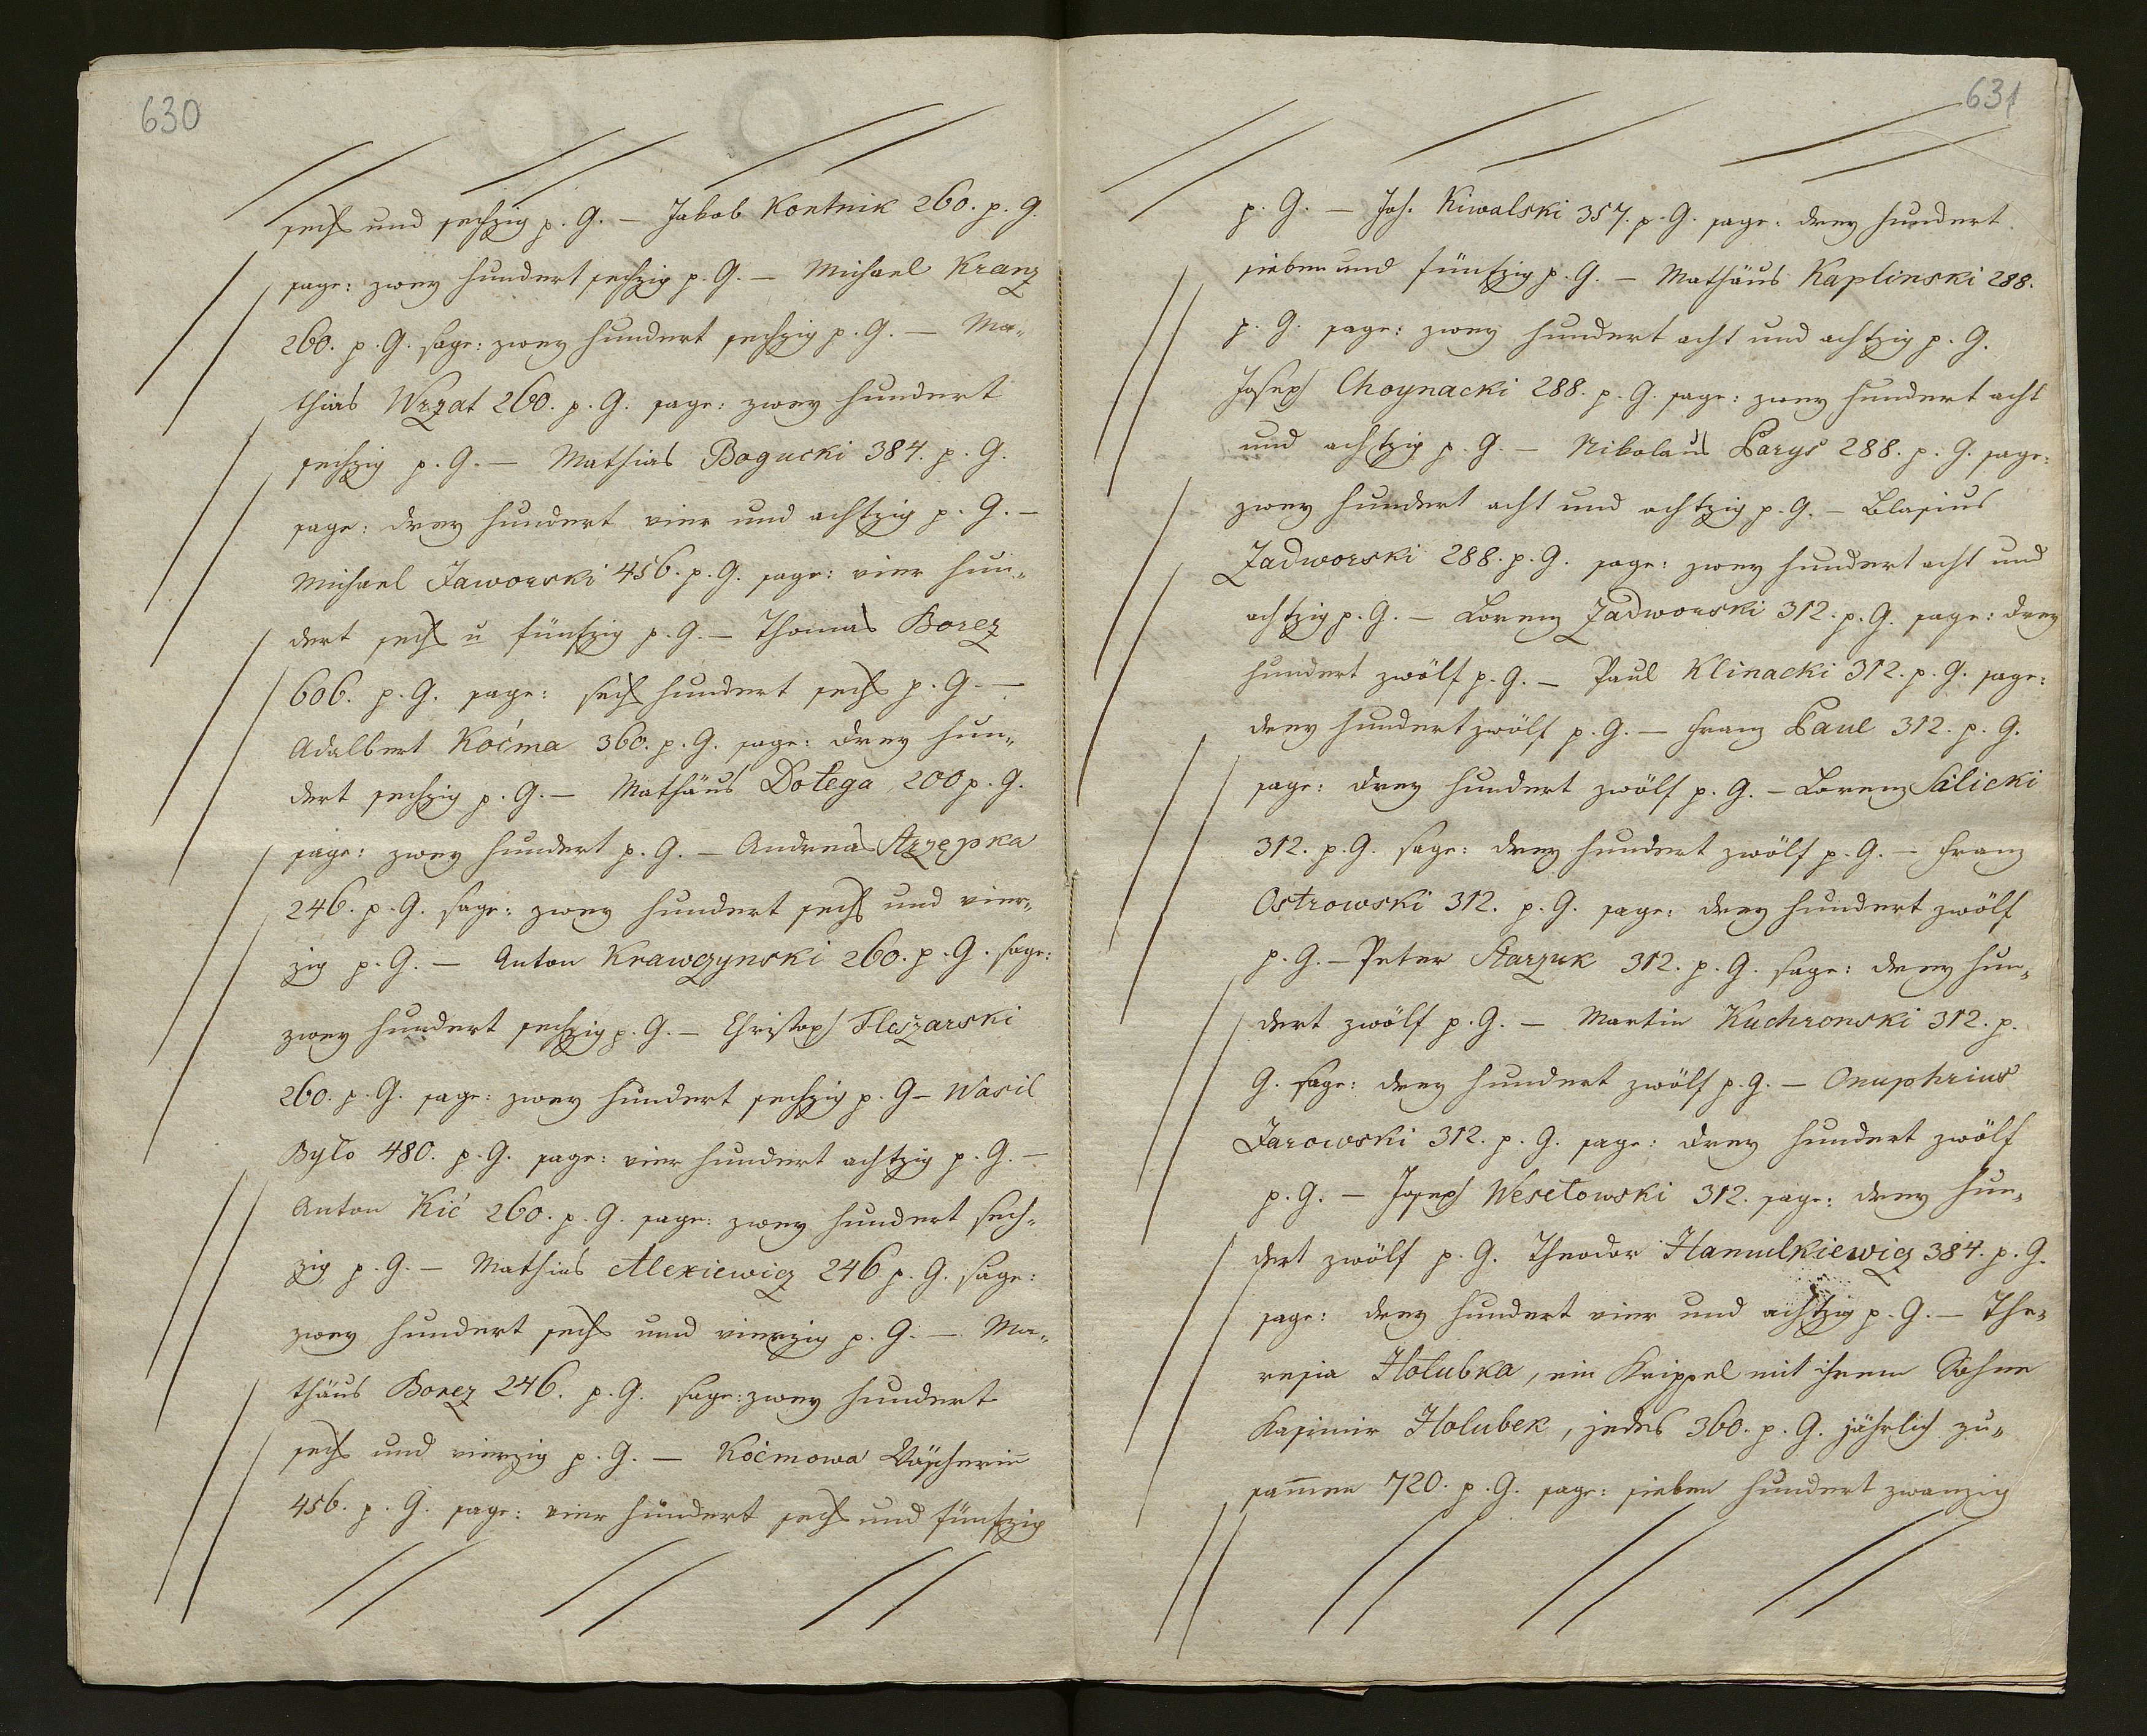 630
sechs und sechzig p. G. — Jakob Kontnik 260. p. G.
sage: zwey hundert sechzig p. G. — Michael Kranz
260. p. G. sage: zwey hundert sechzig p. G. — Ma„
thias Wrzat 260. p. G. sage: zwey hundert
sechzig p. G. — Mathias Bogucki 384. p. G.
sage: drey hundert vier und achtzig p. G. —
Michael Jaworski 456. p. G. sage: vier hun„
dert sechs u fünfzig p. G. — Thomas Borcz
606. p. G. sage: sechs hundert sechs p. G. —
Adalbert Koćma 360. p. G. sage: drey hun„
dert sechzig p. G. — Mathäus Dołega 200 p. G.
sage: zwey hundert p. G. — Andreas Strzępka
246. p. G. sage: zwey hundert sechs und vier„
zig p. G. — Anton Krawczynski 260. p. G. sage:
zwey hundert sechzig p. G. — Christoph Fleszarski
260. p. G. sage: zwey hundert sechzig p. G — Wasil
Było 480. p. G. sage: vier hundert achtzig p. G. —
Anton Kić 260. p. G. sage: zwey hundert sech„
zig p. G. — Mathias Alexiewicz 246 p. G. sage:
zwey hundert sechs und vierzig p. G. — Ma„
thäus Borcz 246. p. G. sage: zwey hundert
sechs und vierzig p. G. — Koćmowa Wäscherin
456. p. G. sage: vier hundert sechs und fünfzig
631
p. G. — Joh. Kiwalski 357. p. G. sage: drey hundert
sieben und fünfzig p. G. — Mathäus Kaplinski 288.
p. G. sage: zwey hundert acht und achtzig p. G.
Joseph Choynacki 288. p. G. sage: zwey hundert acht
und achtzig p. G. — Nikolaus Parys 288. p. G. sage:
zwey hundert acht und achtzig p. G. — Blasius
Zadworski 288. p. G. sage: zwey hundert acht und
achtzig p. G. — Lorenz Zadworski 312. p. G. sage: drey
hundert zwölf p. G. — Paul Klinacki 312. p. G. sage:
drey hundert zwölf p. G. — Franz Paul 312. p. G.
sage: drey hundert zwölf p. G. — Lorenz Salicki
312. p. G. sage: drey hundert zwölf p. G. — Franz
Ostrowski 312. p. G. sage: drey hundert zwölf
p. G. — Peter Starzuk 312. p. G. sage: drey hun„
dert zwölf p. G. — Martin Kuchronski 312. p.
G. sage: drey hundert zwölf p. G. — Onuphrius
Jarowski 312. p. G. sage: drey hundert zwölf
p. G. — Joseph Wesełowski 312. sage: drey hun„
dert zwölf p. G. Theodor Hamulkiewicz 384. p. G.
sage: drey hundert vier und achtzig p. G. — The„
resia Hołubka, ein Krippel mit ihrem Sohne
Kasimir Holubek, jedes 360. p. G. jährlich zu„
sam̅en 720. p. G. sage: sieben hundert zwanzig